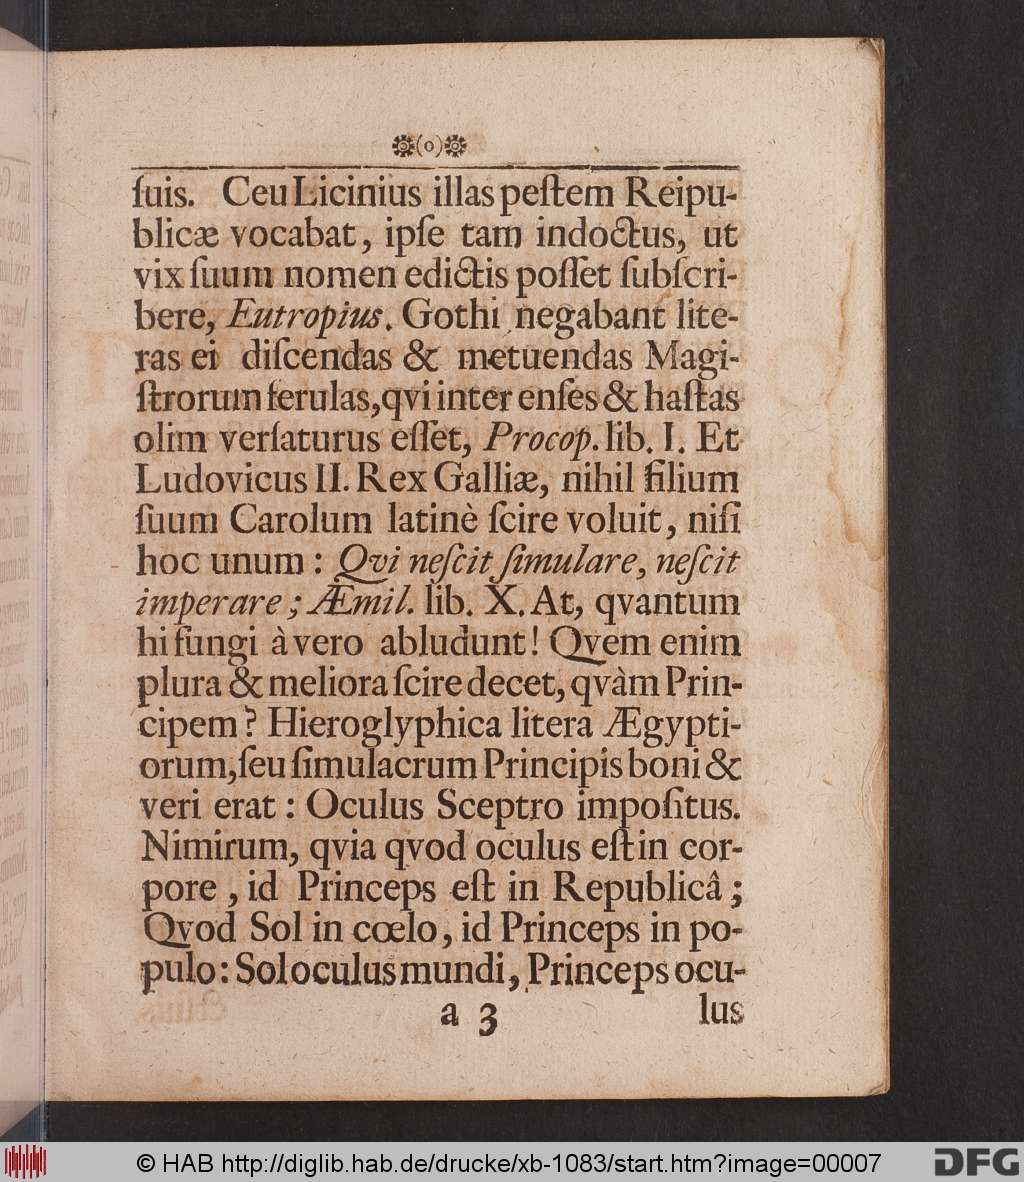 ❁(o)❁
ſuis. Ceu Licinius illas peſtem Reipu-
blicæ vocabat, ipſe tam indoctus, ut
vix ſuum nomen edictis poſſet ſubſcri-
bere, Eutropius. Gothi negabant lite-
ras ei diſcendas & metuendas Magi-
ſtrorum ferulas, qvi inter enſes & haſtas
olim verſaturus eſſet, Procop. lib. I. Et
Ludovicus II. Rex Galliæ, nihil filium
ſuum Carolum latinè ſcire voluit, niſi
hoc unum: Qvi neſcit ſimulare, neſcit
imperare; Æmil. lib. X. At, qvantum
hi fungi à vero abludunt! Qvem enim
plura & meliora ſcire decet, qvàm Prin-
cipem? Hieroglyphica litera Ægypti-
orum, ſeu ſimulacrum Principis boni &
veri erat: Oculus Sceptro impoſitus.
Nimirum, qvia qvod oculus eſt in cor-
pore, id Princeps eſt in Republicâ;
Qvod Sol in cœlo, id Princeps in po-
pulo: Sol oculus mundi, Princeps ocu-
a 3 lus
© HAB http://diglib.hab.de/drucke/xb-1083/start.htm?image=00007 DFG